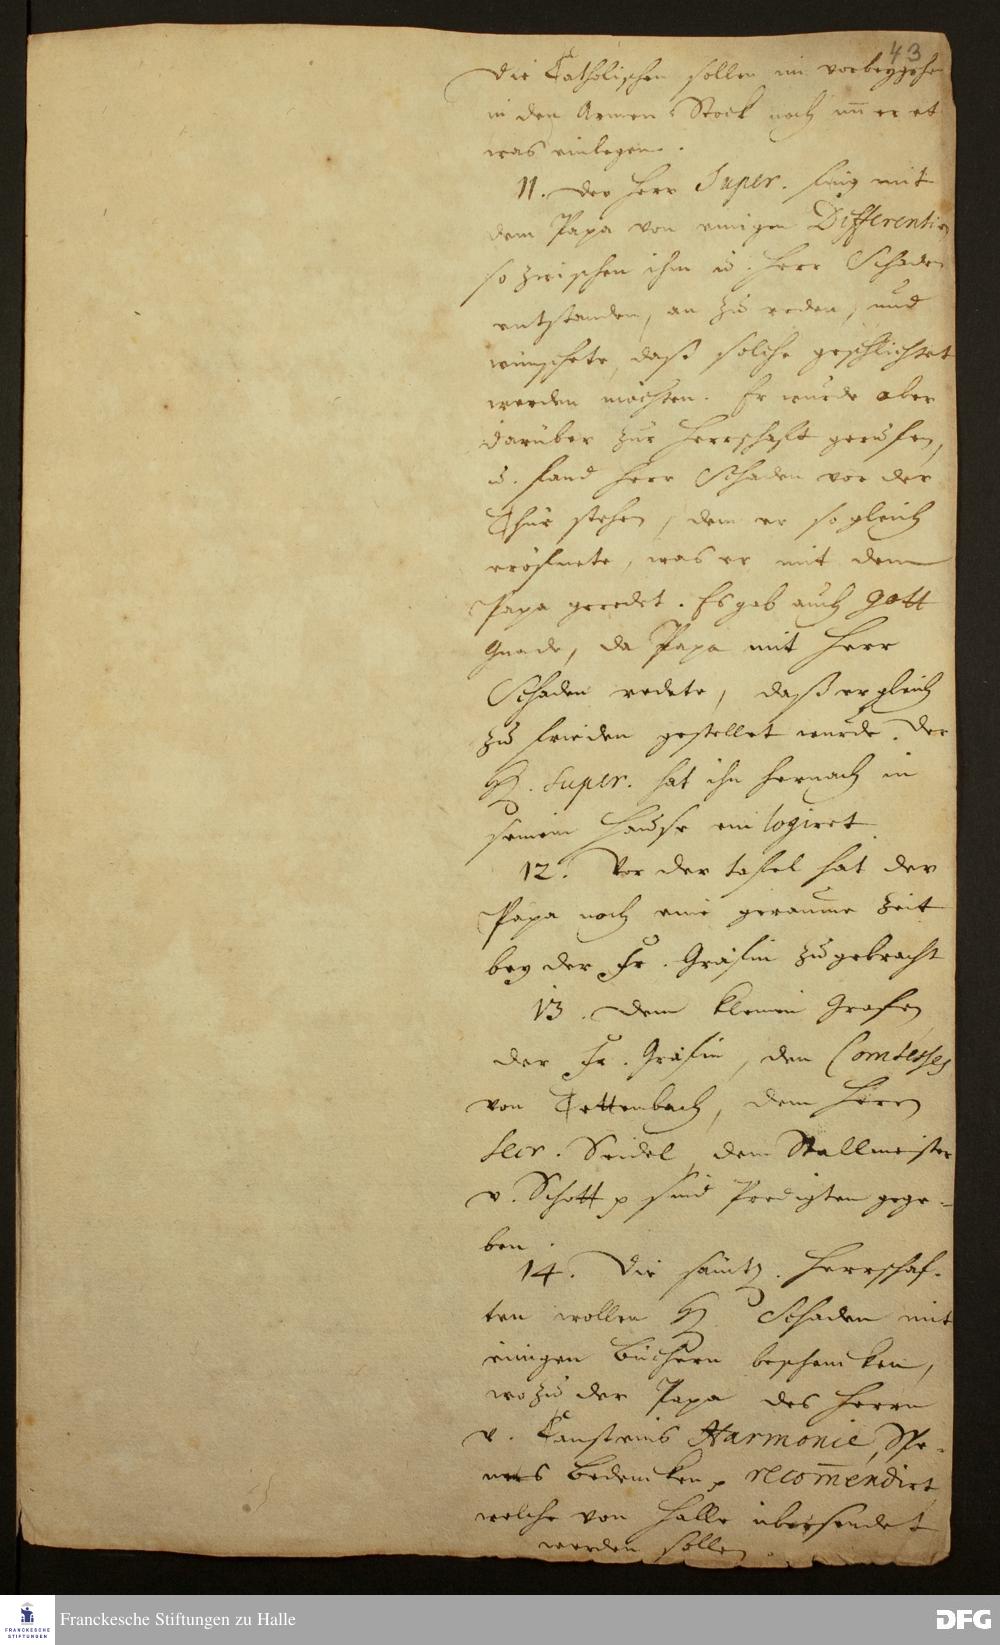 43
die Catholischen sollen im vorbeygehe
in den Armen Stock noch im̄er et
was einlegen.
11. Der Herr Super. fing mit
dem Papa von einigen Differentien
so zwischen ihm u. Herr Schaden
entstanden, an zu reden, und
wünschete, daß solche geschlichtet
werden möchten. Er wurde aber
darüber zur Herrschafft gerufen,
u. fand Herr Schaden vor der
Thür stehen, dem er so gleich
eröfnete, was er mit dem
Papa geredet. Es gab auch Gott
Gnade, da Papa mit Herr
Schaden redete, daß er gleich
zu frieden gestellet wurde. Der
H. Super. hat ihn hernach in
seinem Hause ein logiret.
12. Vor der tafel hat der
Papa noch eine geraume Zeit
bey der Fr. Gräfin zugebracht
13. Dem kleinen Grafen
der Fr. Gräfin, den Comtesses
von Tettenbach, dem Herrn
Secr. Seidel, dem Stallmeister
v. Schott p sind Predigten gege-
ben.
14. Die sämtl. Herrschaf-
ten wollen H. Schaden mit
einigen Büchern beschencken,
wozu der Papa des Herrn
v. Cansteins Harmonie, Spe-
ners Bedencken p recom̄endirt
welche von Halle übersendet
werden sollen.
Franckesche Stiftungen zu Halle
FRANCKESCHE
STIFTUNGEN
DFG